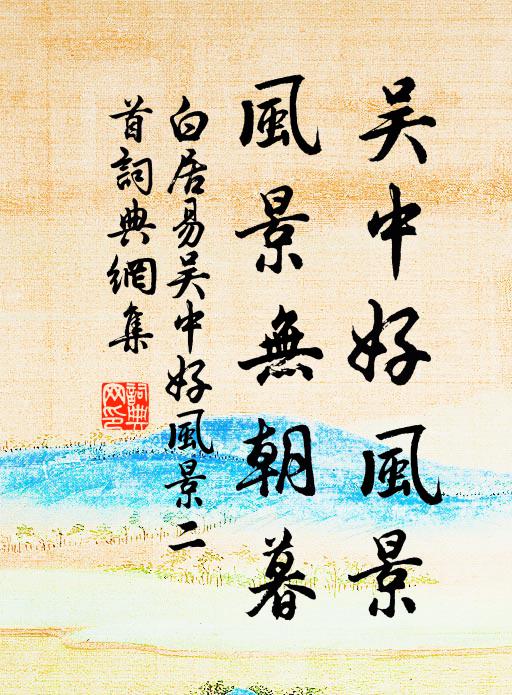 吴中好風景
風景無朝暮
白居易吴中好風景二
首詞典網集
詞典
网印